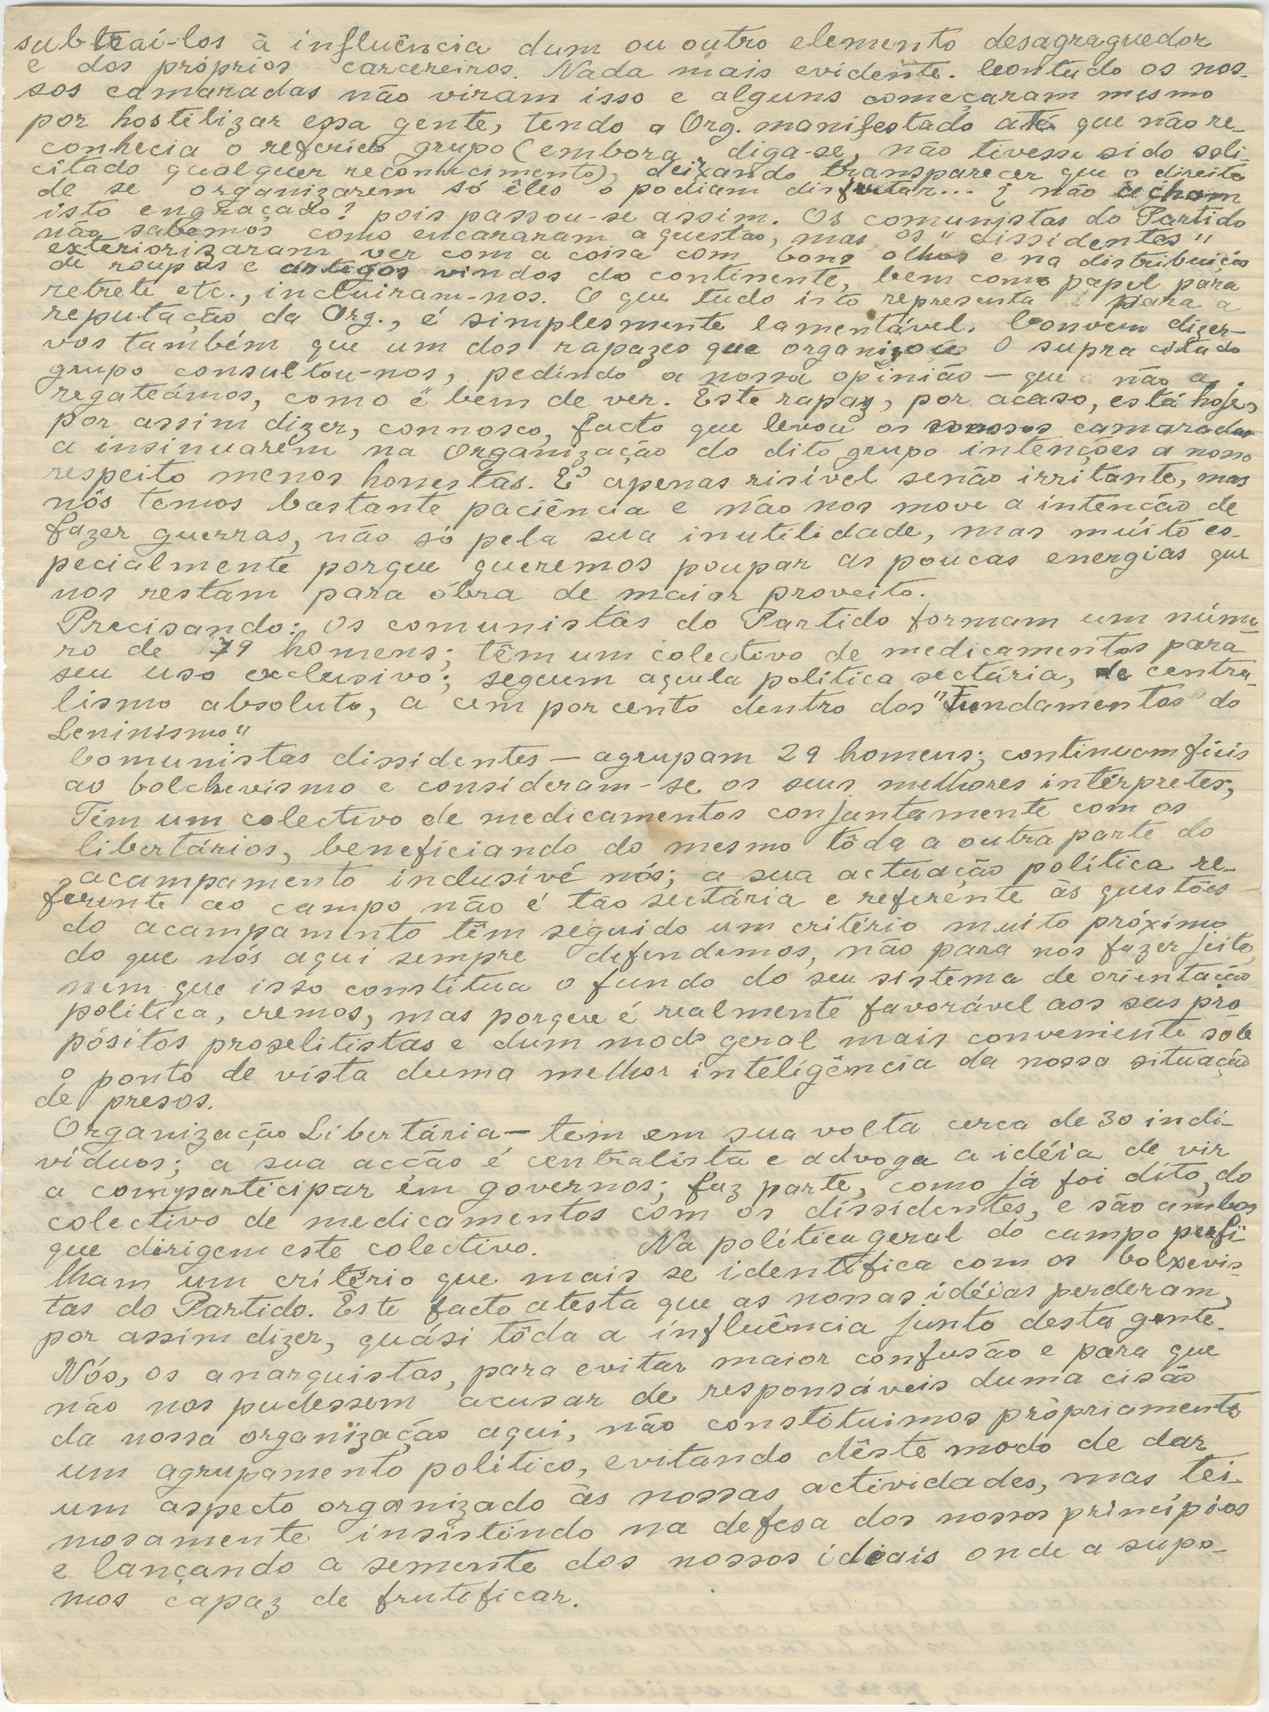 subtraí-los à influência dum ou outro elemento desagraguedor
e dos próprios carcereiros. Nada mais evidente. Contudo os nos-
sos camaradas não viram isso e alguns começaram mesmo
por hostilizar essa gente, tendo a Org. manifestado até que não re-
conhecia o referido grupo (embora, diga-se, não tivesse sido soli-
citado qualquer reconhecimento), deixando transparecer que o direito
de se organizarem só êles o podiam disfrutar... ¿ não acham
isto engraçado? pois passou-se assim. Os comunistas do Partido
não sabemos como encararam a questão, mas os "dissidentes"
exteriorizaram ver com a coisa com bons olhos e na distribuição
de roupas e artigos vindos do continente, bem como papel para
retrete etc., incluiram-nos. O que tudo isto representa para a
reputação da Org., é simplesmente lamentável. Convem dizer-
vos também que um dos rapazes que organizou o supra citado
grupo consultou-nos, pedindo a nossa opinião — que não a
regateámos, como é bem de ver. Êste rapaz, por acaso, está hoje,
por assim dizer, connosco, facto que levou os nossos camaradas
a insinuarem na organização do dito grupo intenções a nosso
respeito menos honestas. É apenas risível senão irritante, mas
nós temos bastante paciência e não nos move a intenção de
fazer guerras, não só pela sua inutilidade, mas muito es-
pecialmente porque queremos poupar as poucas energias que
nos restam para óbra de maior proveito.
Precisando: Os comunistas do Partido formam um núme-
ro de 79 homens; têm um colectivo de medicamentos para
seu uso exclusivo; seguem aquela política sectária, de centra-
lismo absoluto, a cem por cento dentro dos "Fundamentos do
Leninismo"
Comunistas dissidentes — agrupam 29 homens; continuam fieis
ao bolchevismo e consideram-se os seus melhores intérpretes;
Têm um colectivo de medicamentos conjuntamente com os
libertários, beneficiando do mesmo tôda a outra parte do
acampamento inclusivé nós; a sua actuação política re-
ferente ao campo não é tão sectária e referente às questões
do acampamento têm seguido um critério muito próximo
do que nós aqui sempre defendemos, não para nos fazer jeito,
nem que isso constitua o fundo do seu sistema de orientação
política, cremos, mas porque é realmente favorável aos seus pro-
pósitos proselitistas e dum modo geral mais conveniente sôbe
o ponto de vista duma melhor inteligência da nossa situação
de presos.
Organização Libertária — tem em sua volta cerca de 30 indi-
víduos; a sua acção é centralista e advoga a idéia de vir
a comparticipar em governos; faz parte, como já foi dito, do
colectivo de medicamentos com os dissidentes, e são ambos
que dirigem este colectivo. Na política geral do campo perfi-
lham um critério que mais se identifica com os bolxevis-
tas do Partido. Este facto atesta que as nossas idéias perderam,
por assim dizer, quási tôda a influência junto desta gente.
Nós, os anarquistas, para evitar maior confusão e para que
não nos pudessem acusar de responsáveis duma cisão
da nossa organização aqui, não constituimos pròpriamente
um agrupamento político, evitando dêste modo de dar
um aspecto organizado às nossas actividades, mas tei-
mosamente insistindo na defesa dos nossos princípios
e lançando a semente dos nossos ideais onde a supo-
mos capaz de frutificar.